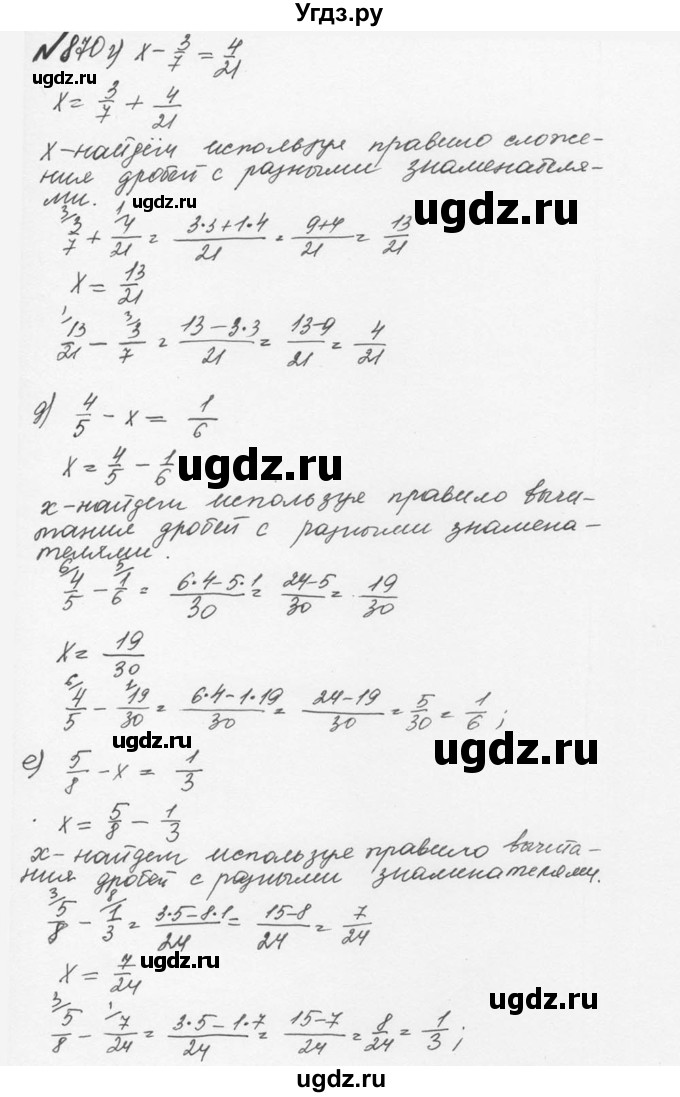 Угдз.ру
№870 г) x - 3/7 = 4/21
ugdz.ru
x = 3/7 + 4/21
x - найдём используя правило сложе-
ния дробей с разными знаменателя-
ми.
ugdz.ru
ugdz.ru
3/ 3/7 + 1/ 4/21 = (3·3+1·4)/21 = (9+4)/21 = 13/21
x = 13/21
1/ 13/21 - 3/ 3/7 = (13-3·3)/21 = (13-9)/21 = 4/21
д) 4/5 - x = 1/6
x = 4/5 - 1/6
ugdz.ru
x - найдем используя правило вычи-
тания дробей с разными знамена-
телями.
6/ 4/5 - 5/ 1/6 = (6·4-5·1)/30 = (24-5)/30 = 19/30
x = 19/30
6/ 4/5 - 1/ 19/30 = (6·4-1·19)/30 = (24-19)/30 = 5/30 = 1/6;
ugdz.ru
ugdz.ru
е) 5/8 - x = 1/3
x = 5/8 - 1/3
x - найдем используя правило вычита-
ния дробей с разными знаменателями.
3/ 5/8 - 8/ 1/3 = (3·5-8·1)/24 = (15-8)/24 = 7/24
ugdz.ru
x = 7/24
ugdz.ru
3/ 5/8 - 1/ 7/24 = (3·5-1·7)/24 = (15-7)/24 = 8/24 = 1/3;
ugdz.ru